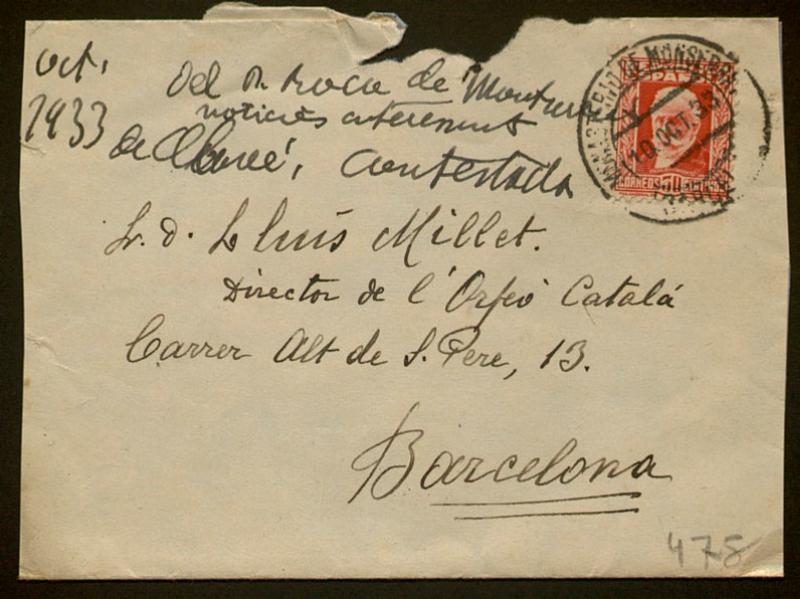 oct.
1933
Del P. Roca de Montserrat
noticies
de Clavé, contestada
Sr. D. Lluís Millet.
Director de l'Orfeó Catalá
Carrer Alt de S. Pere, 13.
Barcelona
MONASTERIO DE MONSERRAT
10 OCT. 33
CORREOS
478